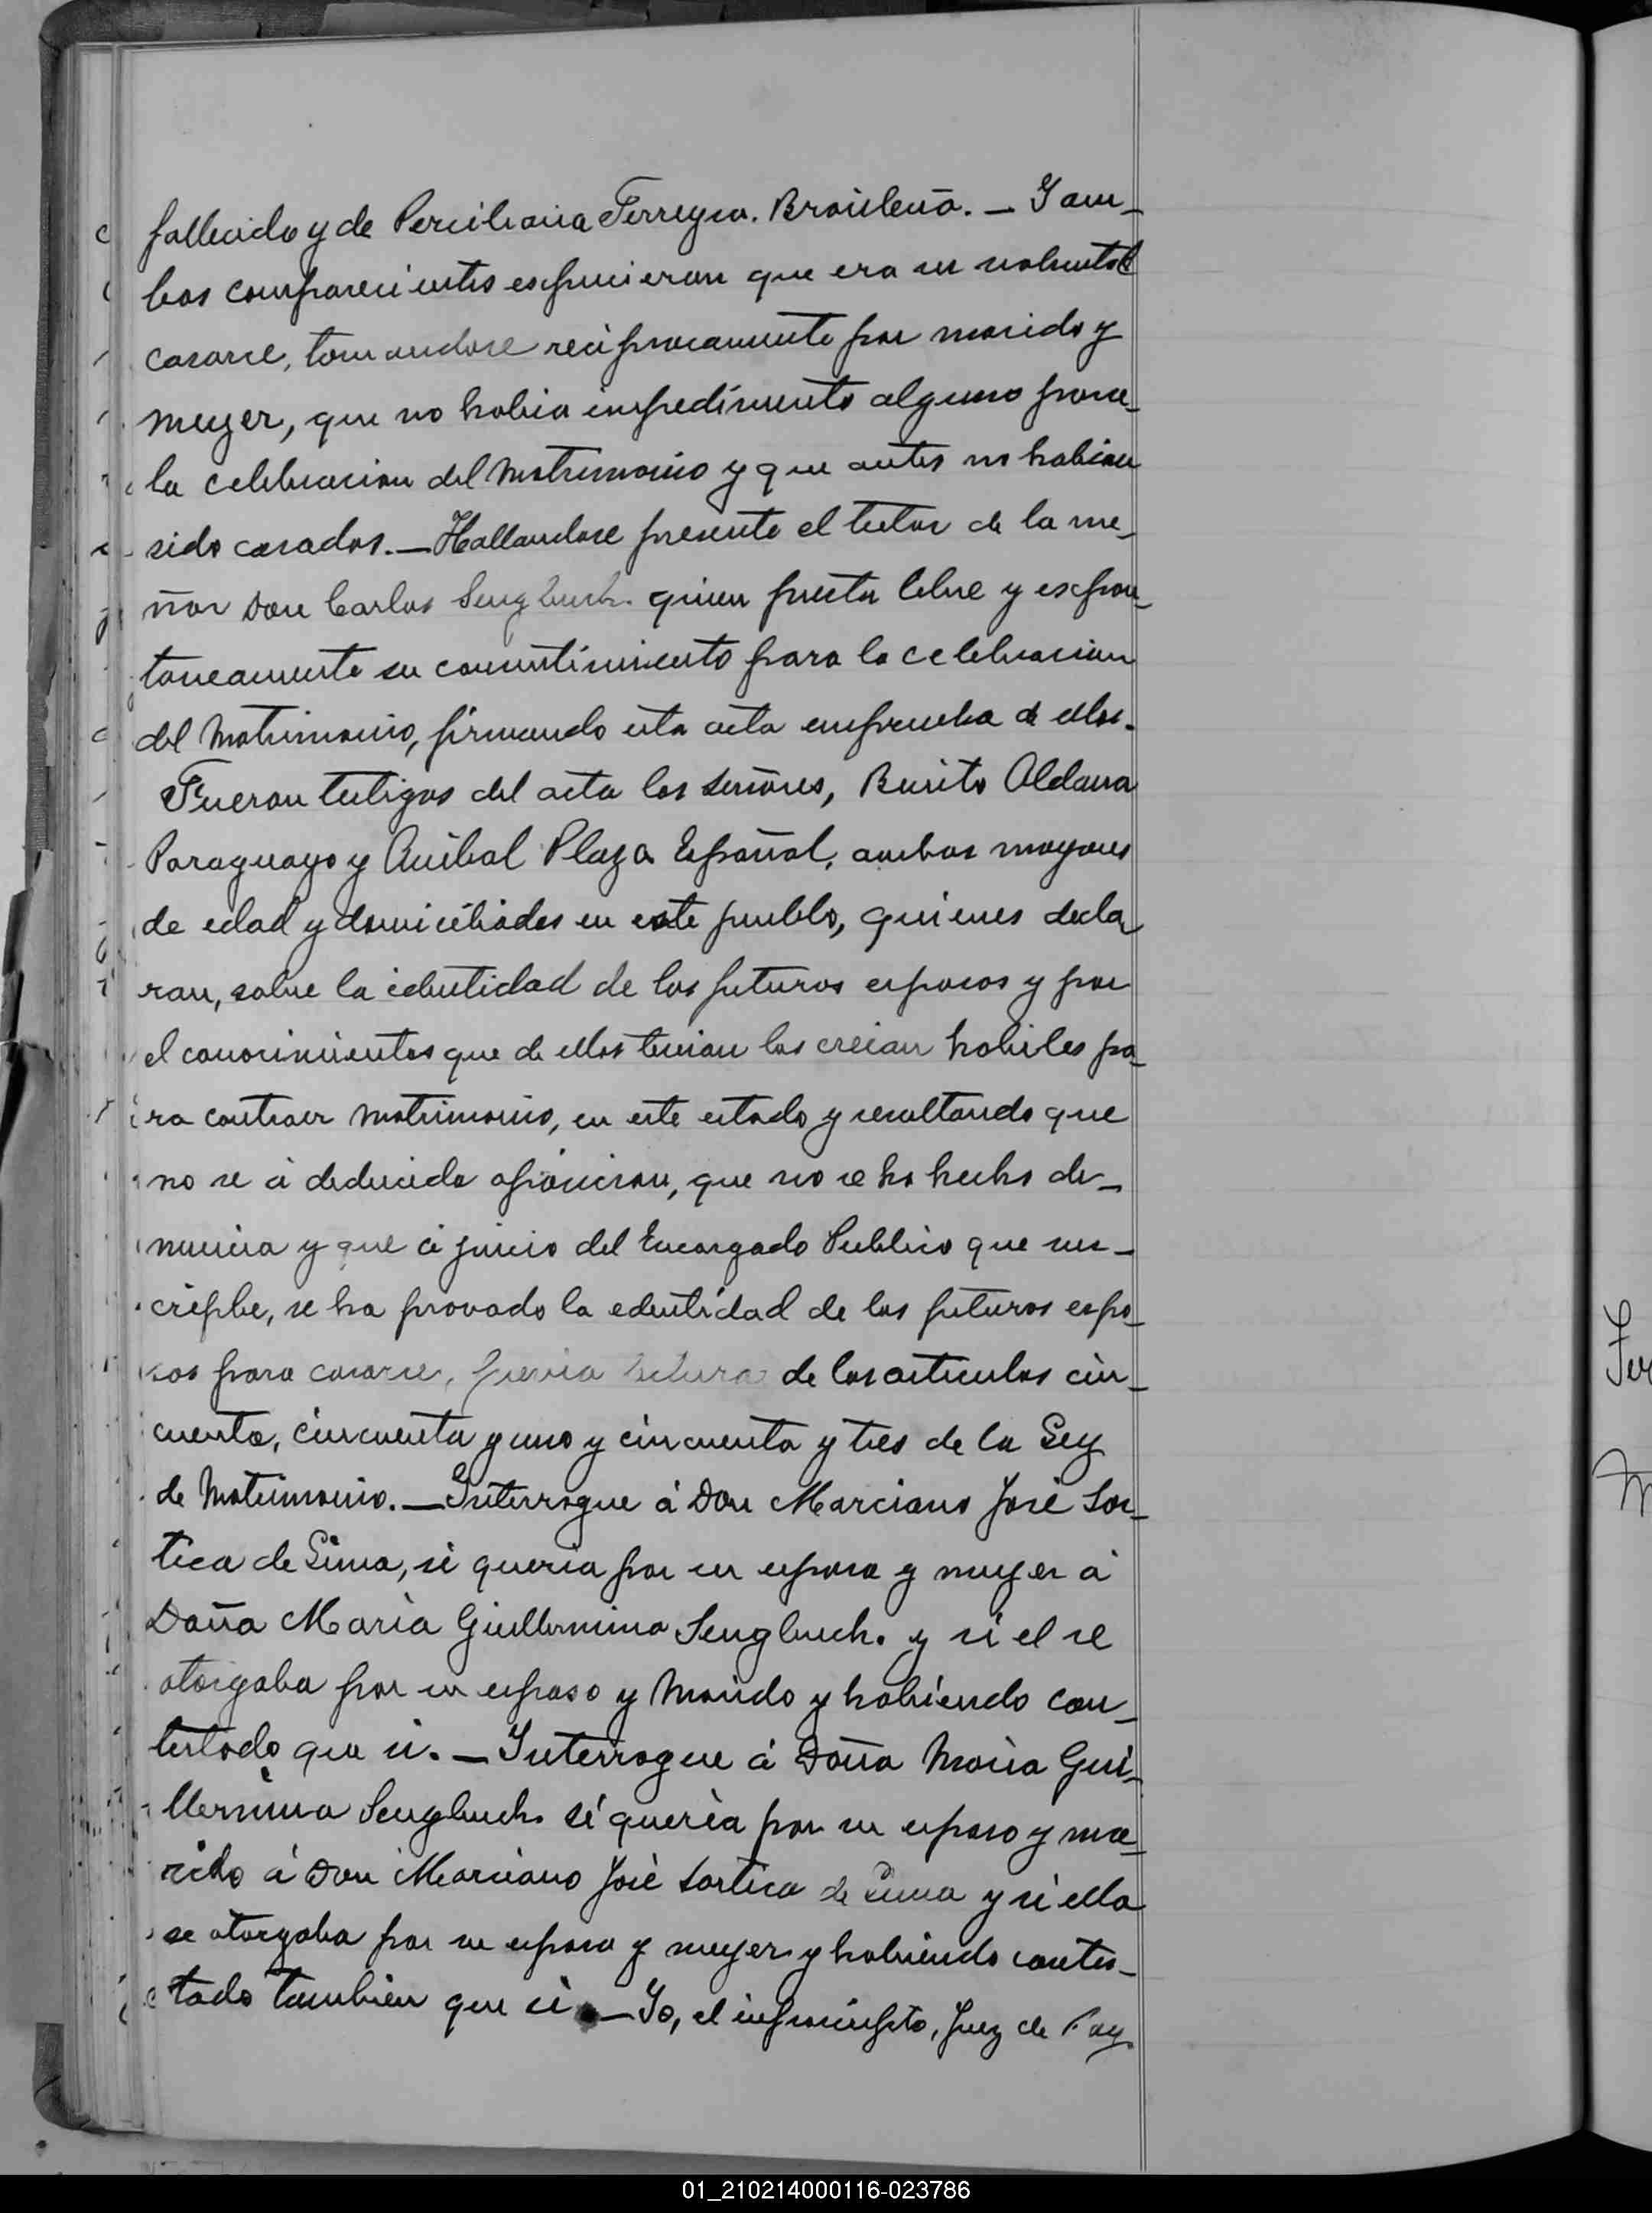 fallecido y de Perciliana Ferreyra. Brasileña. — Y am-
bos comparecientes espucieron que era su voluntad
casarse, tomandose reciprocamente por marido y
muger, que no habia impedimento alguno para
la celebracion del Matrimonio y que antes no habian
sido casados. — Hallandose presente el tutor de la me-
ñor Don Carlos Sengbuch. quien presta libre y espon-
taneamente su consentimiento para la celebracion
del Matrimonio, firmando esta acta enprueba de ellos.
Fueron testigos del acta los señores, Benito Aldana
Paraguayo y Anibal Plaza Español, ambos mayores
de edad y domiciliados en este pueblo, quienes decla
ran, sobre la identidad de los futuros esposos y por
el conocimientos que de ellos tenian los creian habiles pa-
ra contraer matrimonio, en este estado y resultando que
no se á deducido oposicion, que no se ha hecho de-
nuncia y que á juicio del Encargado Publico que sus-
cripbe, se ha provado la edentidad de los futuros espo-
sos para casarse, previa lectura de los articulos cin-
cuenta, cincuenta y uno y cincuenta y tres de la Ley
de Matrimonio. — Interrogue á Don Marciano José Sor-
tica de Lima, si queria por su esposa y muger á
Doña Maria Guillermina Sengbuch. y si el se
otorgaba por su esposo y Marido y habiendo con-
testado que si. — Interrogue á Doña Maria Gui-
llermina Sengbuch. sí queria por su esposo y ma-
rido á Don Marciano José Sortica de Lima y si ella
se otorgaba por su esposa y muger y habiendo contes-
tado tambien que si. — Yo, el infrascripto, Juez de Paz
01_210214000116-023786